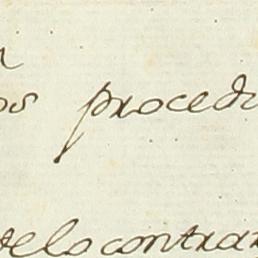 os procedi
de lo contrar